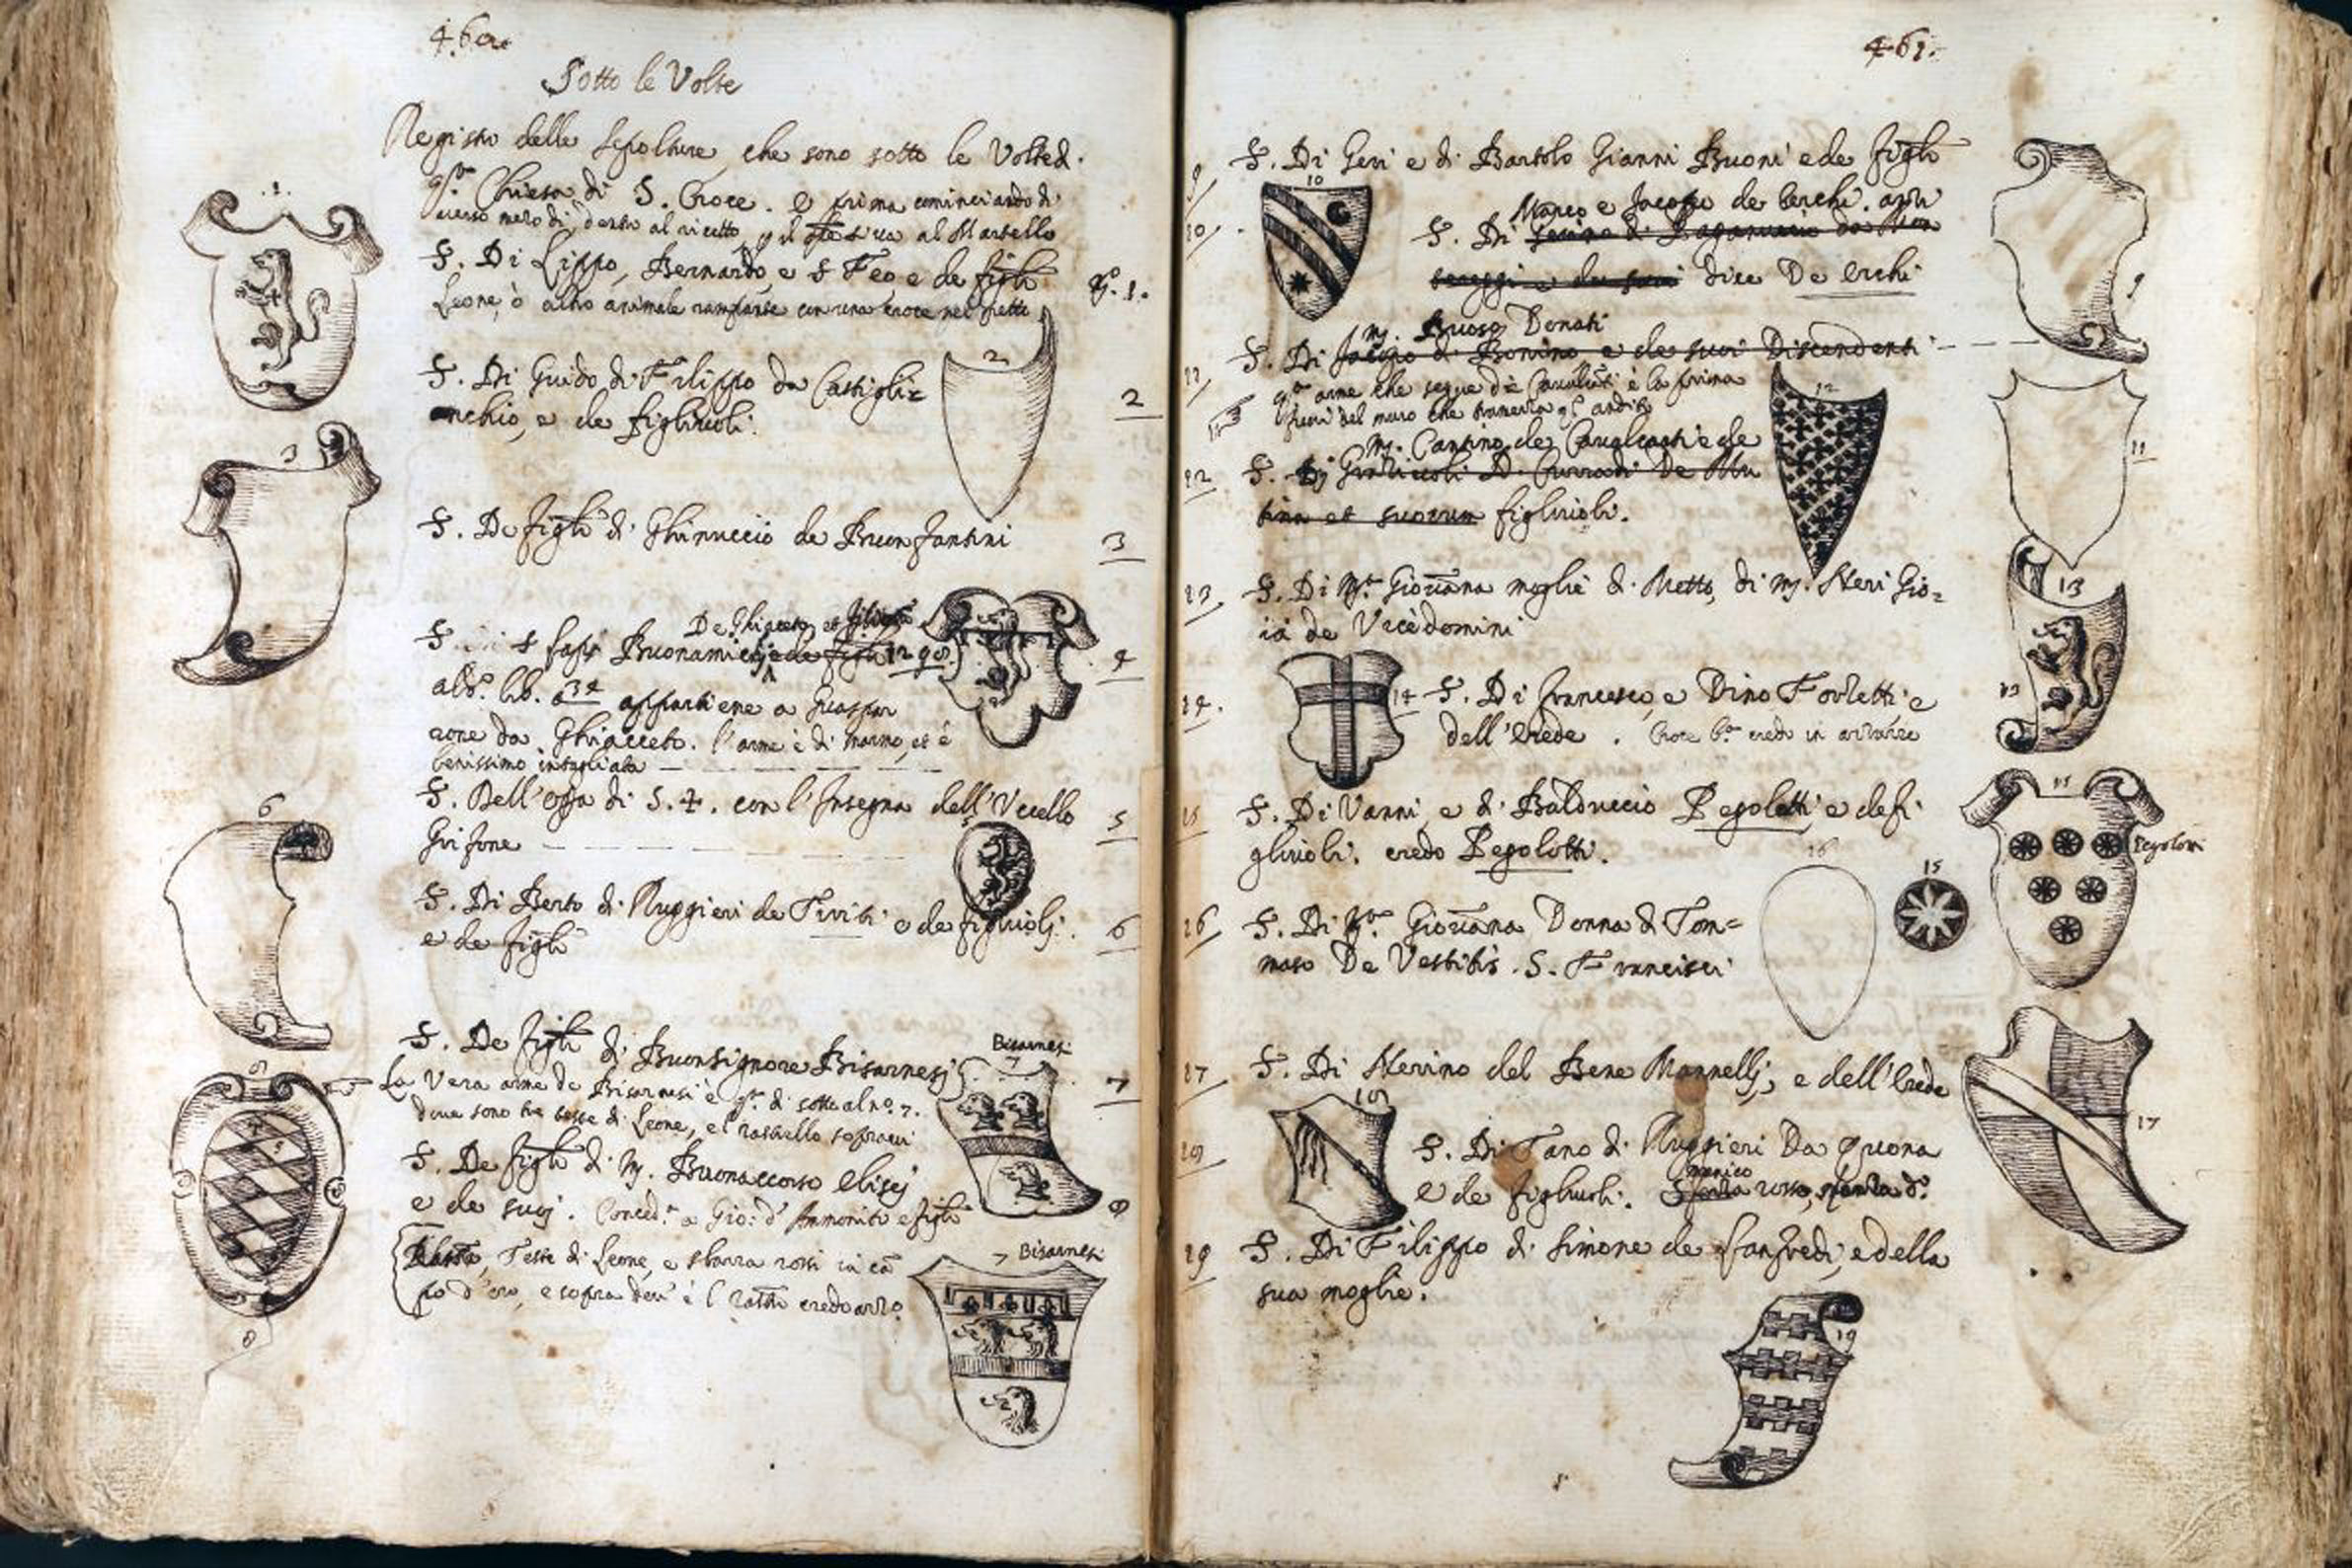 460
Sotto le Volte
Registro delle Sepolture, che sono sotto le Volte d.
Chiesa di S. Croce. e prima cominciando di
verso mezo dì, dentro al ricetto, p il al Martello
S. Di Lippo, Bernardo, e S Feo, e de figli
Leone, ò altro animale rampante con una croce nel petto
1.
S. Di Guido di Filippo da Castigli=
onchio, e de figliuoli.
2
S. De figli di Ghinuccio de Buonfantini
3
De Ghiaceto et
S. Buonamici e de figli 1298.
4
all. lib. appartiene a Guaspar
rone da Ghiacceto. l'arme è di marmo, et è
benissimo intagliata
S. Dell'opa di S. ‡. con l'Insegna dell'Vccello
Grifone
5
S. Di Berto di Ruggieri de Tiribi e de figliuoli.
e de figli
6
S. De figli di Buonsignore Bisarnesi
La Vera arme de Bisarnesi è q.ª di sotto al nº. 7.
dove sono tre teste di Leone, e'l rastrello sopravi
7
S. De figli di M. Buonaccorso Elisej
e de suoj. Conced.ª a Gio: d' Ammonito e figli
8
Teste di Leone, e sbarra rossi in cã
po d'oro, e sopra è l credo azzo.
1
2
3
6
7
Bisarnesi
7 Bisarnesi
8
461.
9
S. Di Geri e di Bartolo Gianni Buoni e de figli
10
Marco e Jacopo de Cerchi.
S. Di
dice De Cerchi
11
M. Buoso Donati
S. Di Jacopo di Bonino e de suoi Discendenti
q.ª arme che segue d è Cavalcãti è la prima
fuori del muro che tramezza q.º andito
M. Cantino de Cavalcanti e de
12
S. Di Currado De
et suorum figliuoli.
13
S. Di M.ª Giovãna moglie di Netto, di M. Neri Gio=
ia de Vicedomini
14.
S. Di Francesco, e Vino Forletti e
dell'Erede. Croce b.ª credo in azzurro
15
S. Di Vanni, e di Balduccio Pegoletti, e de fi
gliuoli. credo Pegolotti.
16
S. Di M.ª Giovãna Donna di Tom=
maso De Vestibis. S. Francisci
17
S. Di Nerino del Bene Mannelli, e dell'Erede
18
S. Di Tano di Ruggieri Da Quona
e de figliuoli. manico rosso,
19
S. Di Filippo di Simone de Lanfredi, e della
sua moglie.
10
12
14
16
15
18
19
9
11
13
15
Pegolotti
17